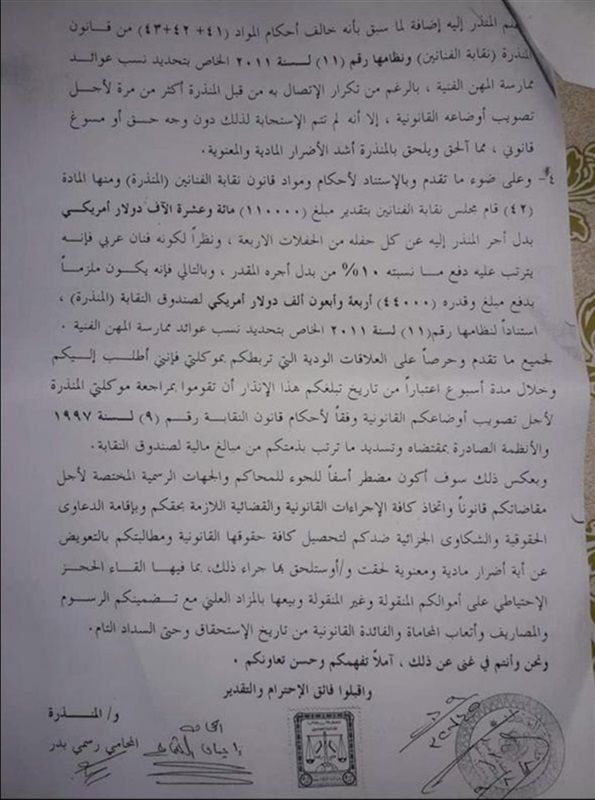 المنذر إليه إضافة لما سبق بأنه خالف أحكام المواد (٤١+ ٤٢+٤٣) من قانون
المنذرة (نقابة الفنانين) ونظامها رقم (١١) لسنة ٢٠١١ الخاص بتحديد نسب عوائد
ممارسة المهن الفنية ، بالرغم من تكرار الإتصال به من قبل المنذرة أكثر من مرة لأجل
تصويب أوضاعه القانونية ، إلا أنه لم تتم الإستجابة لذلك دون وجه حق أو مسوغ
قانوني ، مما ألحق ويلحق بالمنذرة أشد الأضرار المادية والمعنوية .
٤- وعلى ضوء ما تقدم وبالإستناد لأحكام ومواد قانون نقابة الفنانين (المنذرة) ومنها المادة
(٤٢) قام مجلس نقابة الفنانين بتقدير مبلغ (١١٠٠٠٠) مائة وعشرة الآف دولار أمريكي
بدل أجر المنذر إليه عن كل حفله من الحفلات الاربعة ، ونظراً لكونه فنان عربي فإنه
يترتب عليه دفع ما نسبته ١٠% من بدل أجره المقدر ، وبالتالي فإنه يكون ملزماً
بدفع مبلغ وقدره (٤٤٠٠٠) أربعة وأبعون ألف دولار أمريكي لصندوق النقابة (المنذرة) ،
استناداً لنظامها رقم(١١) لسنة ٢٠١١ الخاص بتحديد نسب عوائد ممارسة المهن الفنية .
لجميع ما تقدم وحرصاً على العلاقات الودية التي تربطكم بموكلتي فإنني أطلب إليكم
وخلال مدة أسبوع اعتباراً من تاريخ تبلغكم هذا الإنذار أن تقوموا بمراجعة موكلتي المنذرة
لأجل تصويب أوضاعكم القانونية وفقاً لأحكام قانون النقابة رقم (٩) لسنة ١٩٩٧
والأنظمة الصادرة بمقتضاه وتسديد ما ترتب بذمتكم من مبالغ مالية لصندوق النقابة.
وبعكس ذلك سوف أكون مضطر أسفاً للجوء للمحاكم والجهات الرسمية المختصة لأجل
مقاضاتكم قانوناً واتخاذ كافة الإجراءات القانونية والقضائية اللازمة بحقكم وبإقامة الدعاوى
الحقوقية والشكاوى الجزائية ضدكم لتحصيل كافة حقوقها القانونية ومطالبتكم بالتعويض
عن أية أضرار مادية ومعنوية لحقت و/أوستلحق بها جراء ذلك، بما فيها القاء الحجز
الإحتياطي على أموالكم المنقولة وغير المنقولة وبيعها بالمزاد العلني مع تضمينكم الرسوم
والمصاريف وأتعاب المحاماة والفائدة القانونية من تاريخ الإستحقاق وحتى السداد التام.
ونحن وأنتم في غنى عن ذلك ، آملاً تفهمكم وحسن تعاونكم .
واقبلوا فائق الإحترام والتقدير
و/ المنذرة
المحامي رسمي بدر